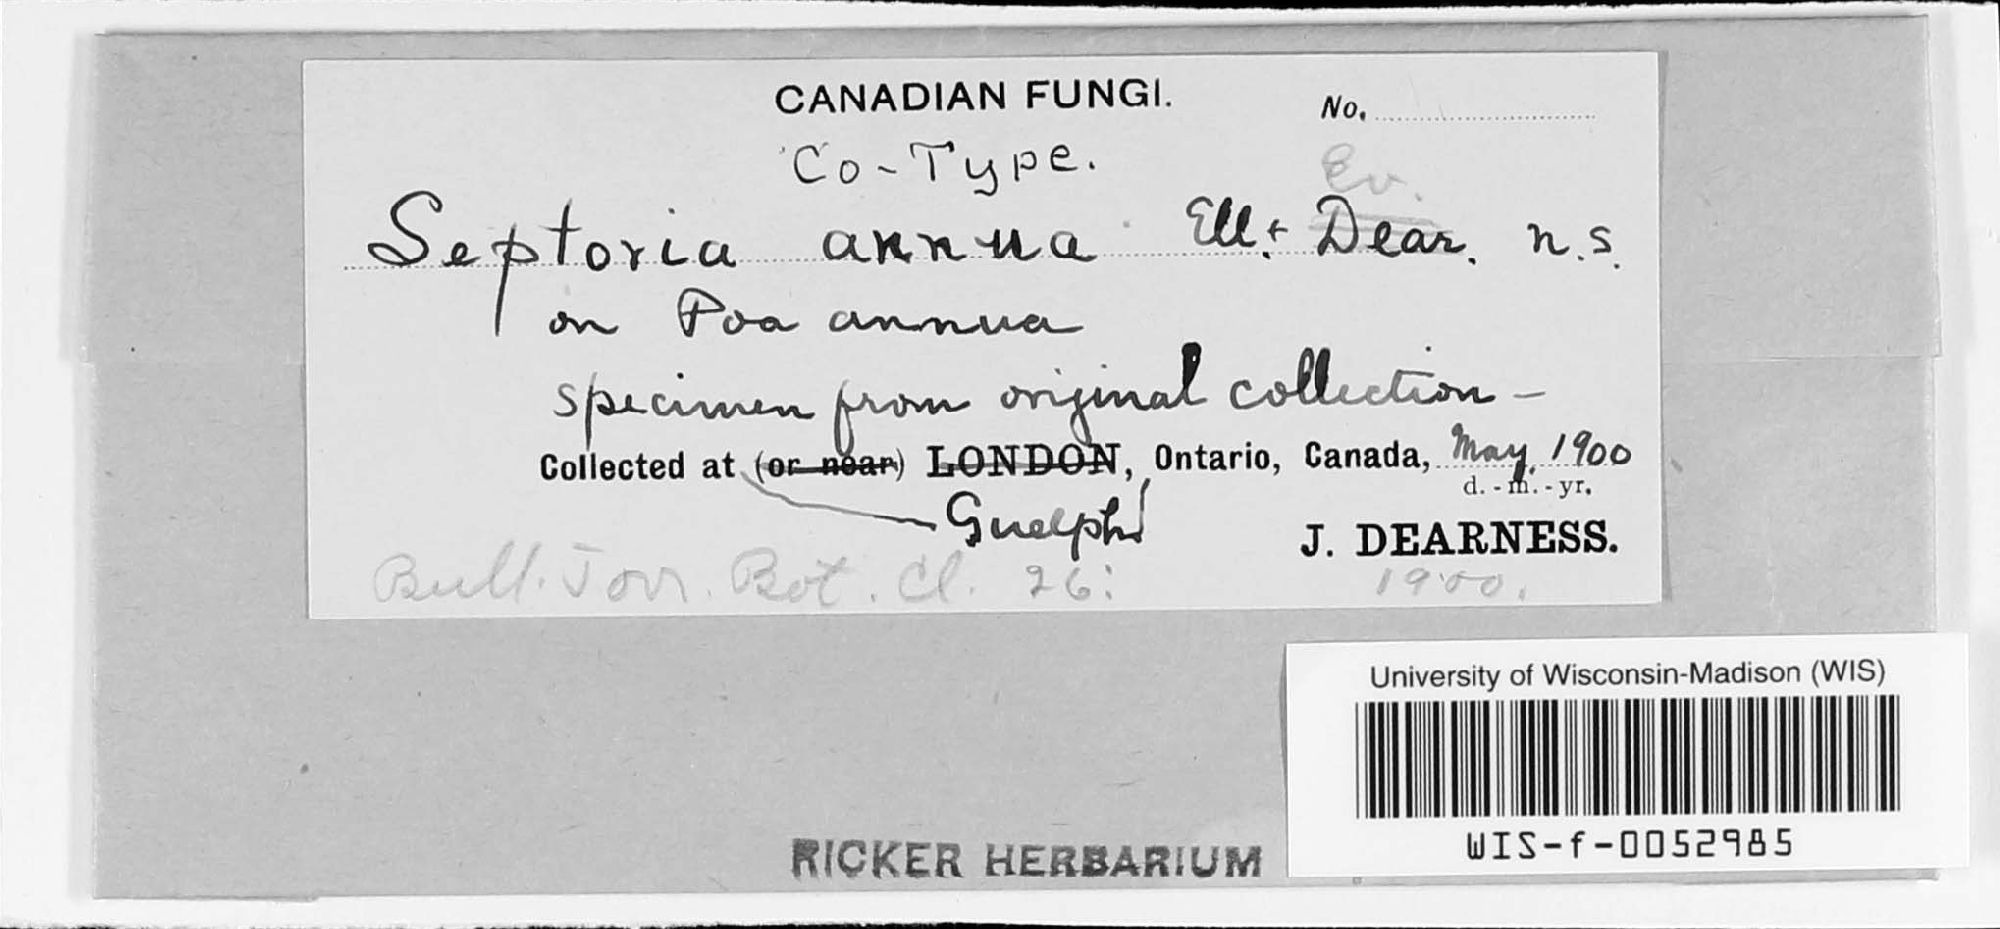 CANADIAN FUNGI.
No.
Co-Type.
Ev.
Septoria annua Ell. + Dear. n.s.
on Poa annua
specimen from original collection -
Collected at (or near) LONDON, Ontario, Canada, May, 1900
d.-m.-yr.
Guelph
J. DEARNESS.
Bull. Torr. Bot. Cl. 26: 1900.
University of Wisconsin-Madison (WIS)
WIS-f-0052985
RICKER HERBARIUM